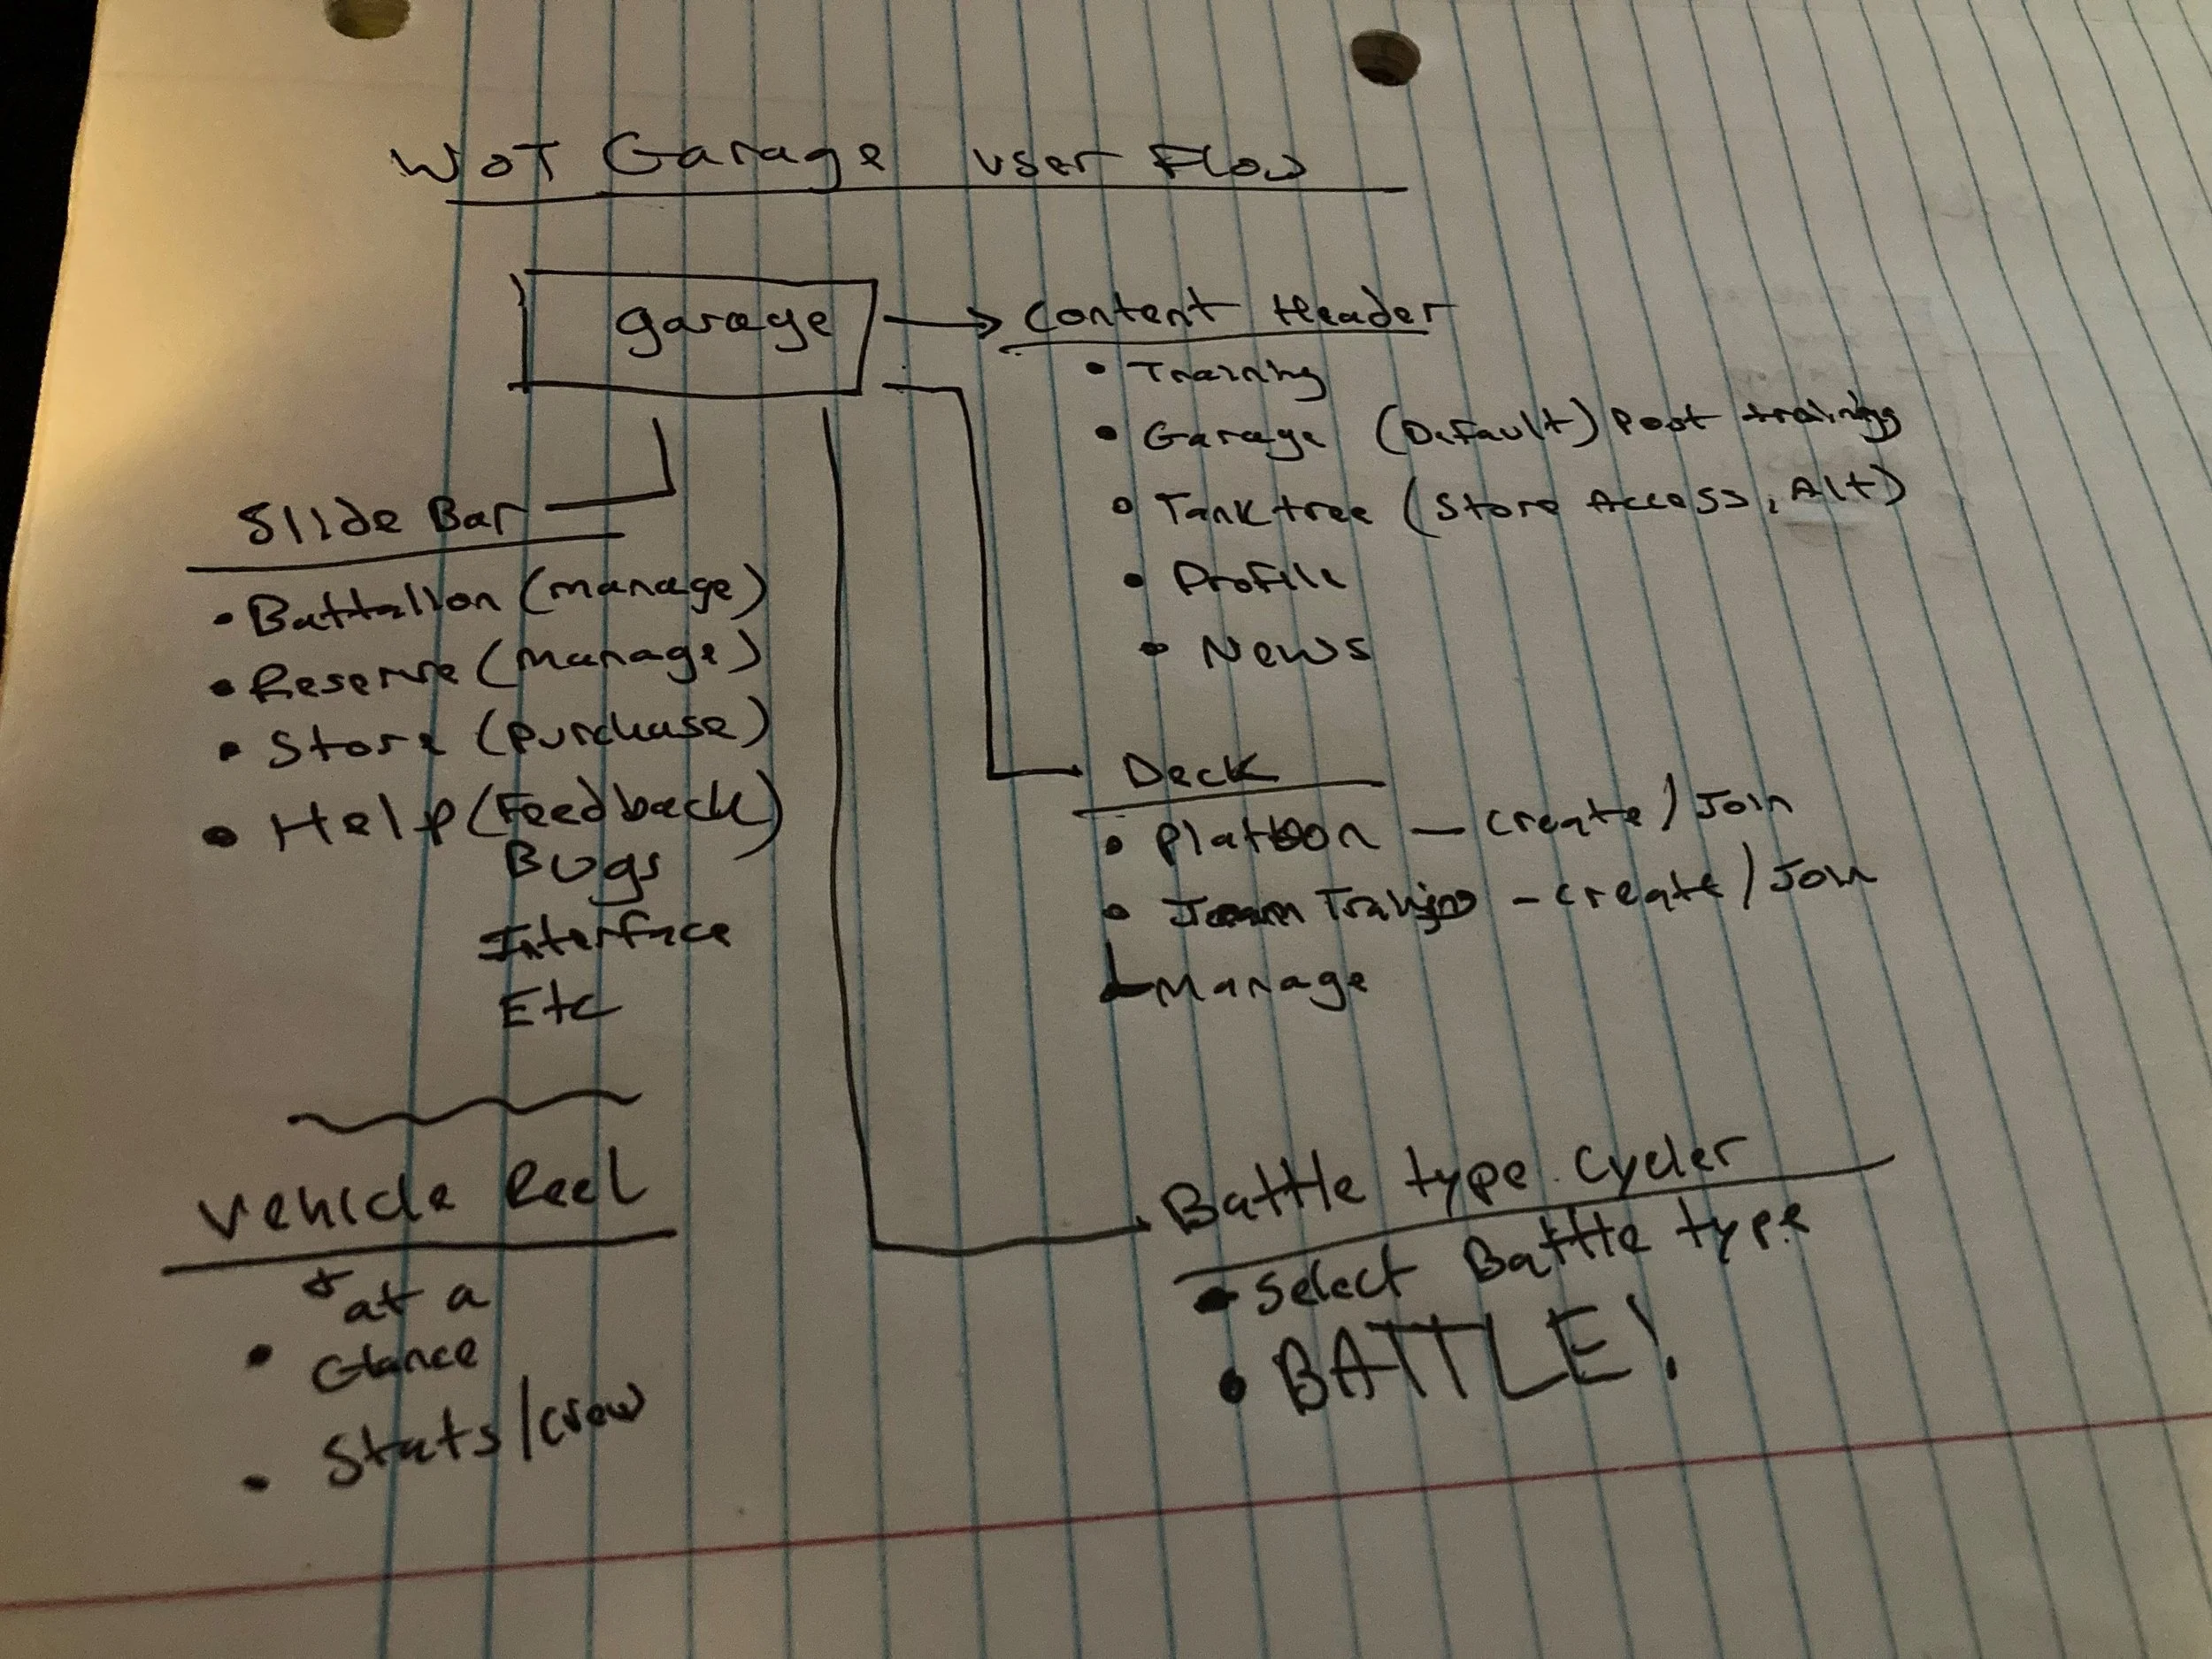 WOT Garage user Flow
garage
Content Header
• Training
• Garage (Default) Post training
• Tank tree (Store Access, Alt)
• Profile
• News
Slide Bar
• Battalion (manage)
• Reserve (manage)
• Store (purchase)
• Help (Feedback)
Bugs
Interface
Etc
Deck
• Platoon — create / Join
• Team Training - create / Join
Manage
Vehicle Reel
at a
• Glance
• Stats/crew
Battle type Cycler
• Select Battle type
• BATTLE!